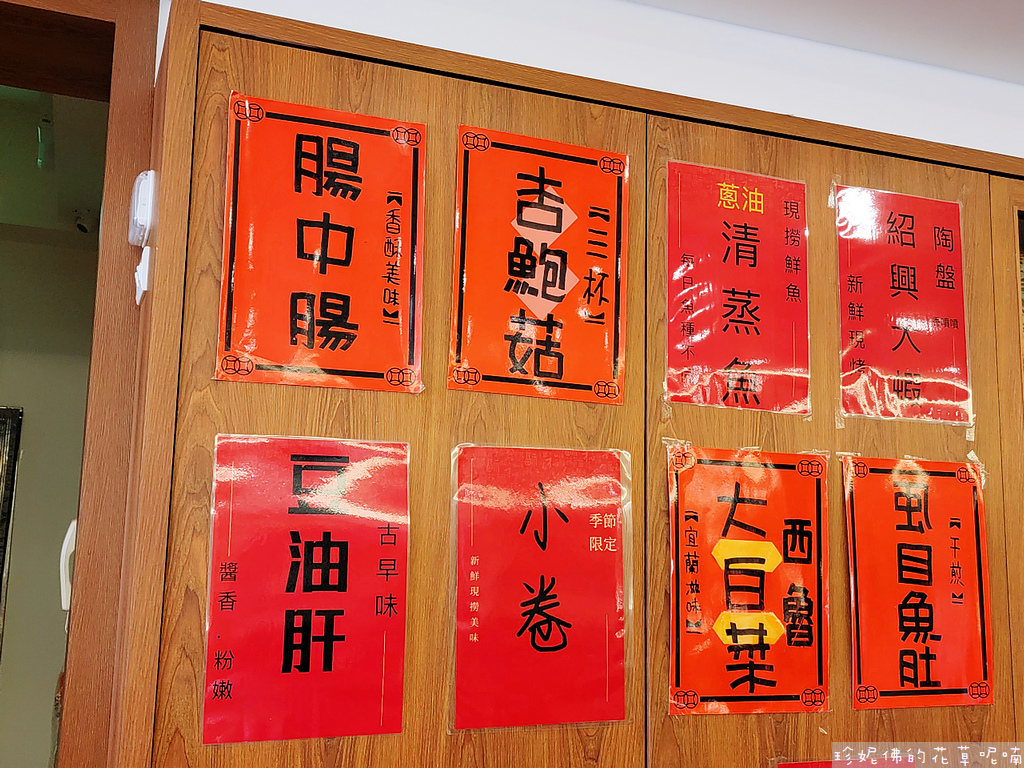 腸中腸
【香酥美味】
杏鮑菇
【三杯】
蔥油
清蒸魚
現撈鮮魚
每日魚種不同
陶盤
紹興大蝦
香噴噴
新鮮現烤
豆油肝
古早味
醬香.粉嫩
小卷
季節
限定
新鮮現撈美味
西魯
大白菜
【宜蘭滋味】
虱目魚肚
【干煎】
珍妮佛的花草呢喃